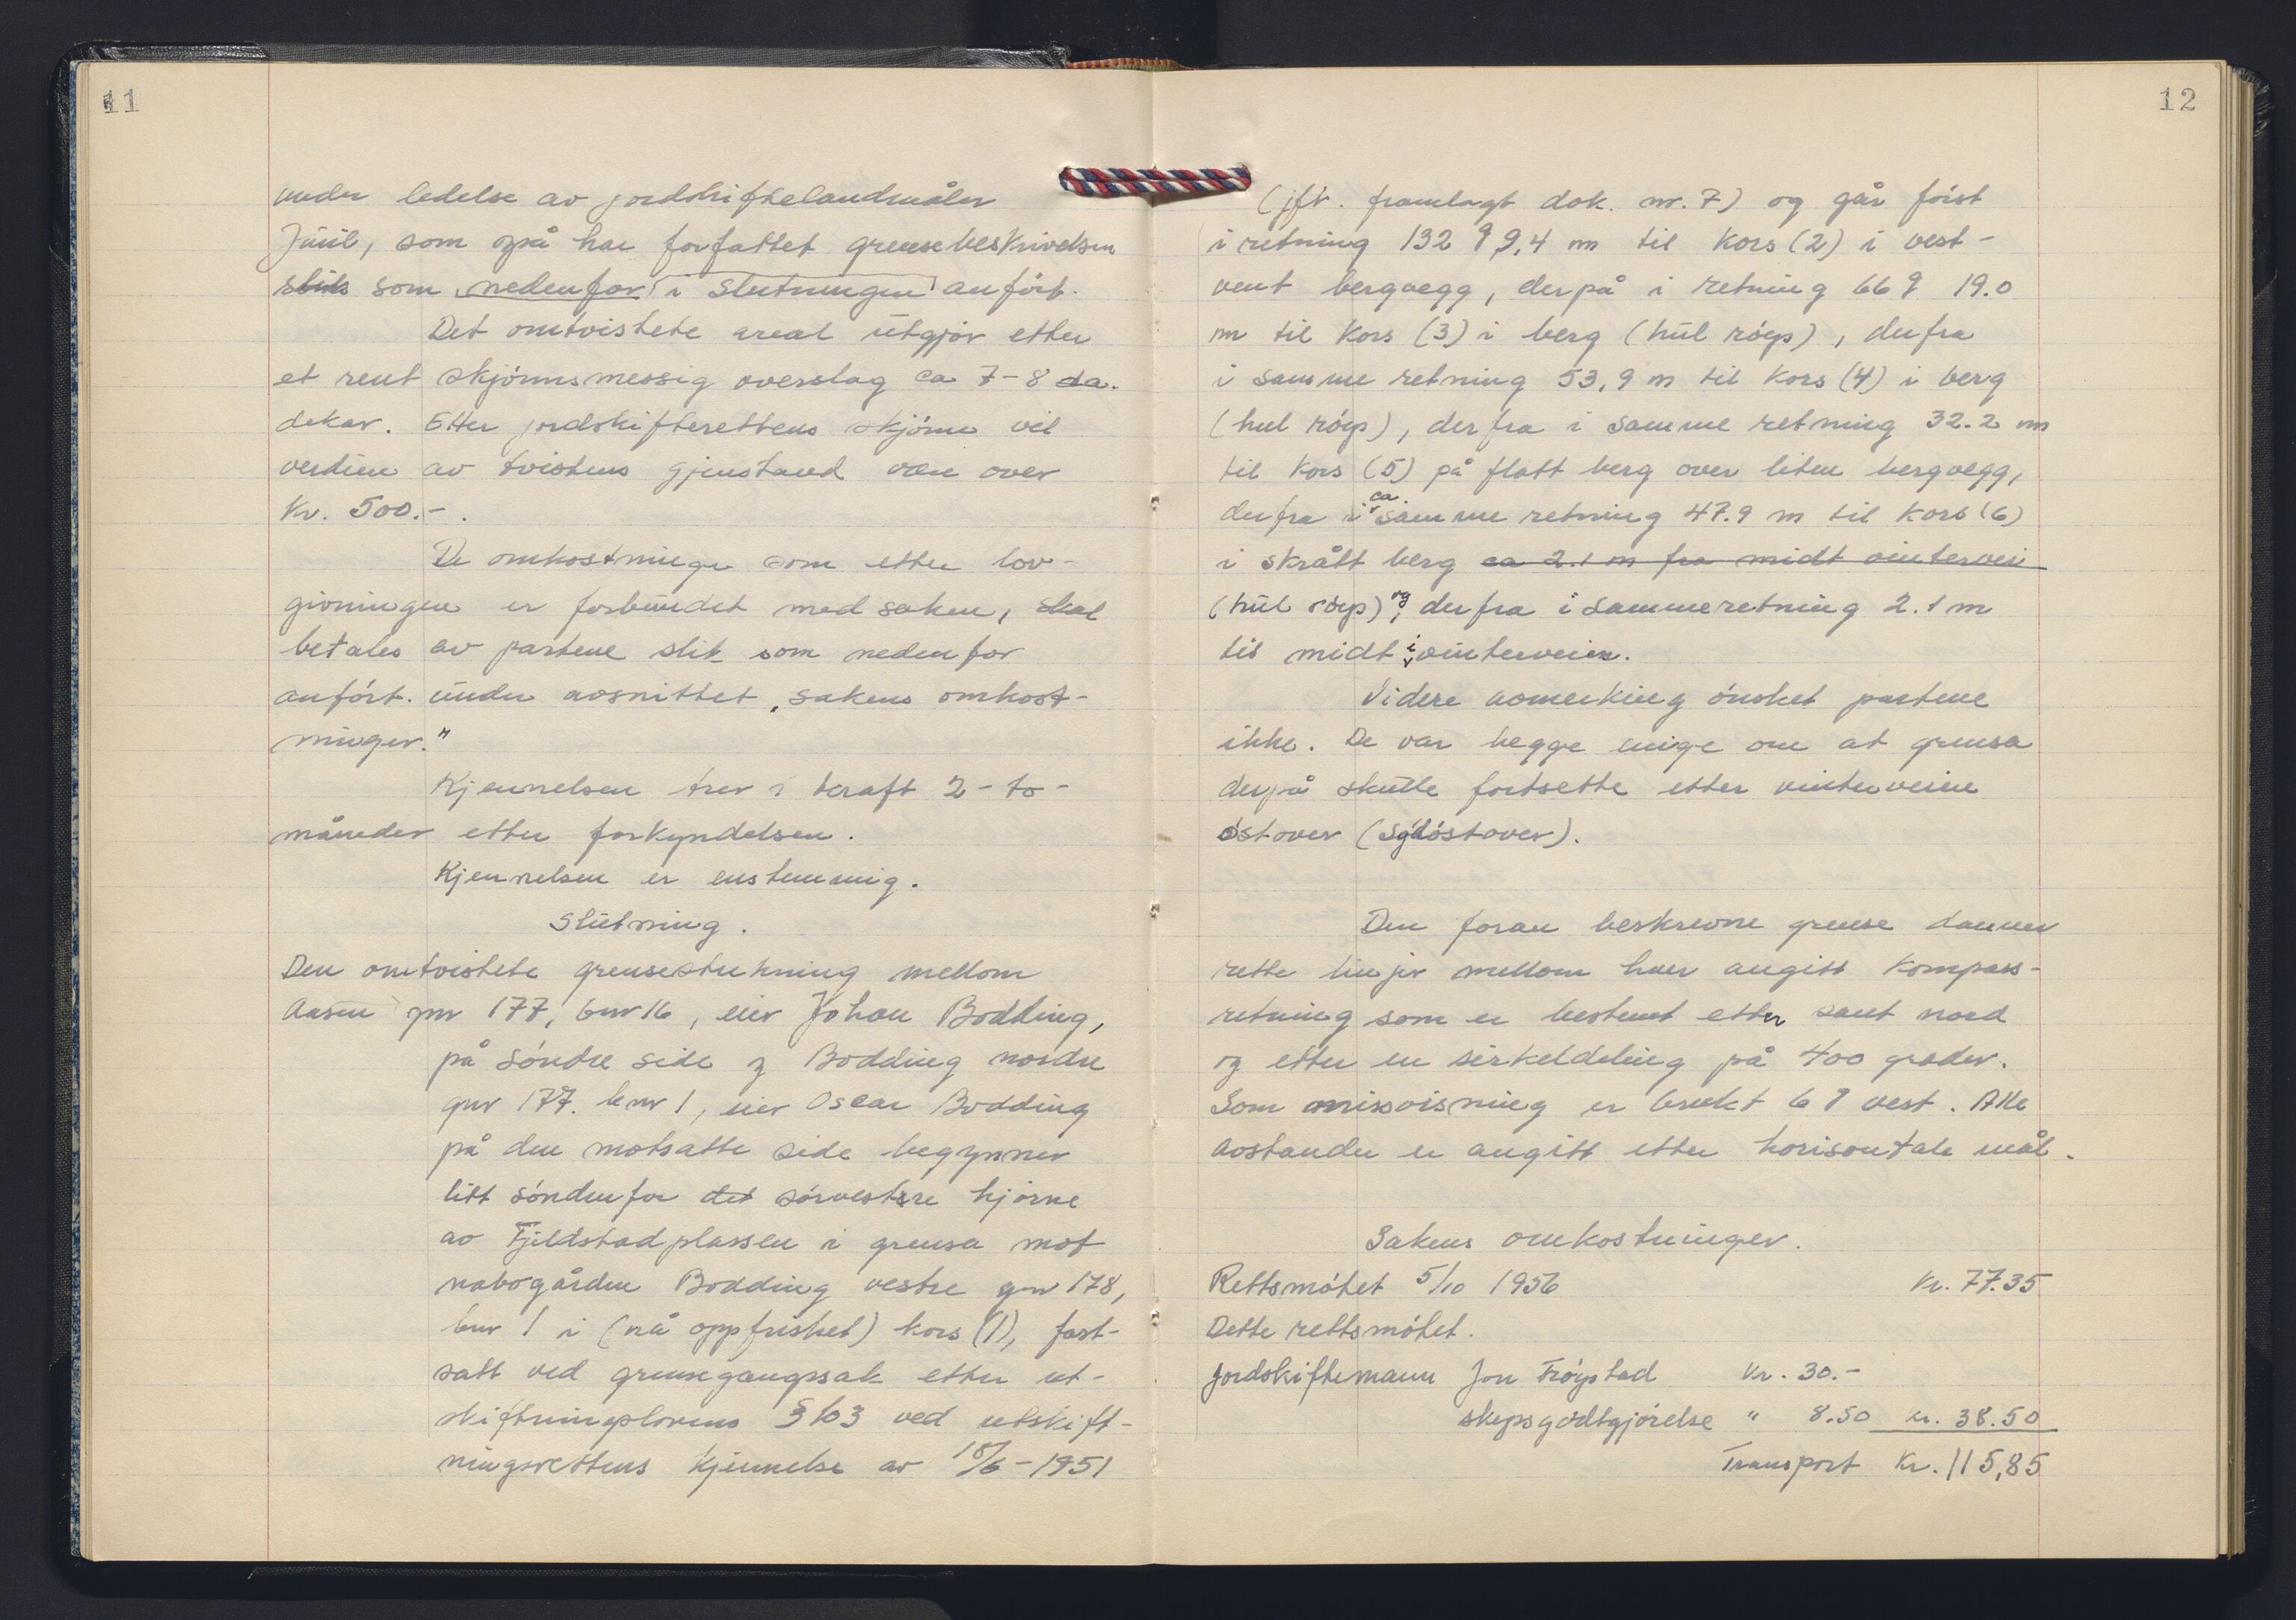 11
under ledelse av jordskiftelandmåler
Juul, som også har forfattet grensebeskrivelsen
slik som nedenfor i slutningen anført.
Det omtvistete areal utgjør etter
et rent skjønnsmessig overslag ca 7-8 da.
dekar. Etter jordskifterettens skjønn vil
verdien av tvistens gjenstand være over
Kr. 500.-.
De omkostninger som etter lov-
givningen er forbundet med saken, skal
betales av partene slik som nedenfor
anført. under avsnittet „sakens omkost-
ninger."
Kjennelsen trer i kraft 2 - to -
måneder etter forkyndelsen.
Kjennelsen er enstemmig.
Slutning.
Den omtvistete grensestrekning mellom
Aasen gnr 177, bnr 16, eier Johan Bodding,
på søndre side og Bodding nordre
gnr 177. bnr 1, eier Oscar Bodding
på den motsatte side begynner
litt søndenfor det sørvestre hjørne
av Fjeldstadplassen i grensa mot
nabogården Bodding vestre gnr 178,
bnr 1 i (nå oppfrisket) kors (1), fast-
satt ved grensegangssak etter ut-
skiftningslovens § 103 ved utskift-
ningsrettens kjennelse av 18/6-1951
12
(jfr. framlagt dok. nr. 7) og går først
i retning 132 g 9,4 m til kors (2) i vest-
vent bergvegg, derpå i retning 66 g 19.0
m til kors (3) i berg (hul røys), derfra
i samme retning 53,9 m til kors (4) i berg
(hul røys), derfra i samme retning 32.2 m
til kors (5) på flatt berg over liten bergvegg,
derfra i ca. samme retning 47.9 m til kors (6)
i skrått berg ca 2.1 m fra midt vintervei
(hul røys) og, derfra i samme retning 2.1 m
til midt i vinterveien.
Videre avmerking ønsket partene
ikke. De var begge enige om at grensa
derpå skulle fortsette etter vinterveien
østover (sydøstover).
Den foran beskrevne grense danner
rette linjer mellom hver angitt kompass-
retning som er bestemt etter sant nord
og etter en sirkeldeling på 400 grader.
Som misvisning er brukt 6 g vest. Alle
avstander er angitt etter horisontale mål.
Sakens omkostninger.
Rettsmøtet 5/10 1956 Kr. 77.35
Dette rettsmøtet.
Jordskiftemann Jon Frøystad Kr. 30.-
skyssgodtgjørelse " 8.50 kr. 38.50
Transport Kr. 115,85